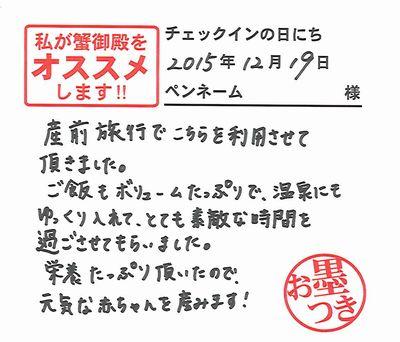 私が蟹御殿を
オススメ
します!!
チェックインの日にち
2015年12月19日
ペンネーム 様
産前旅行でこちらを利用させて
頂きました。
ご飯もボリュームたっぷりで、温泉にも
ゆっくり入れて、とても素敵な時間を
過ごさせてもらいました。
栄養たっぷり頂いたので、
元気な赤ちゃんを産みます!
お墨つき